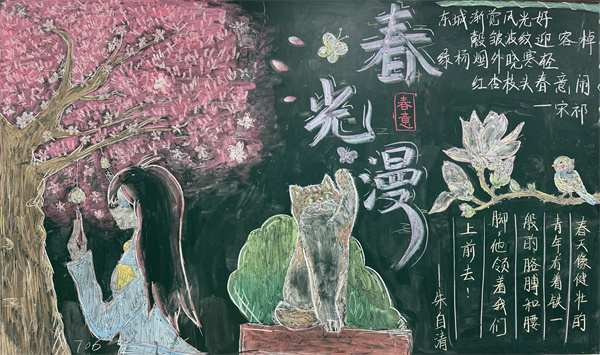 春光漫
春意
东城渐觉风光好
縠皱波纹迎客棹
绿杨烟外晓寒轻
红杏枝头春意闹
—宋祁
春天像健壮的
青年有着铁一
般的胳膊和腰
脚,他领着我们
上前去!
——朱自清
706